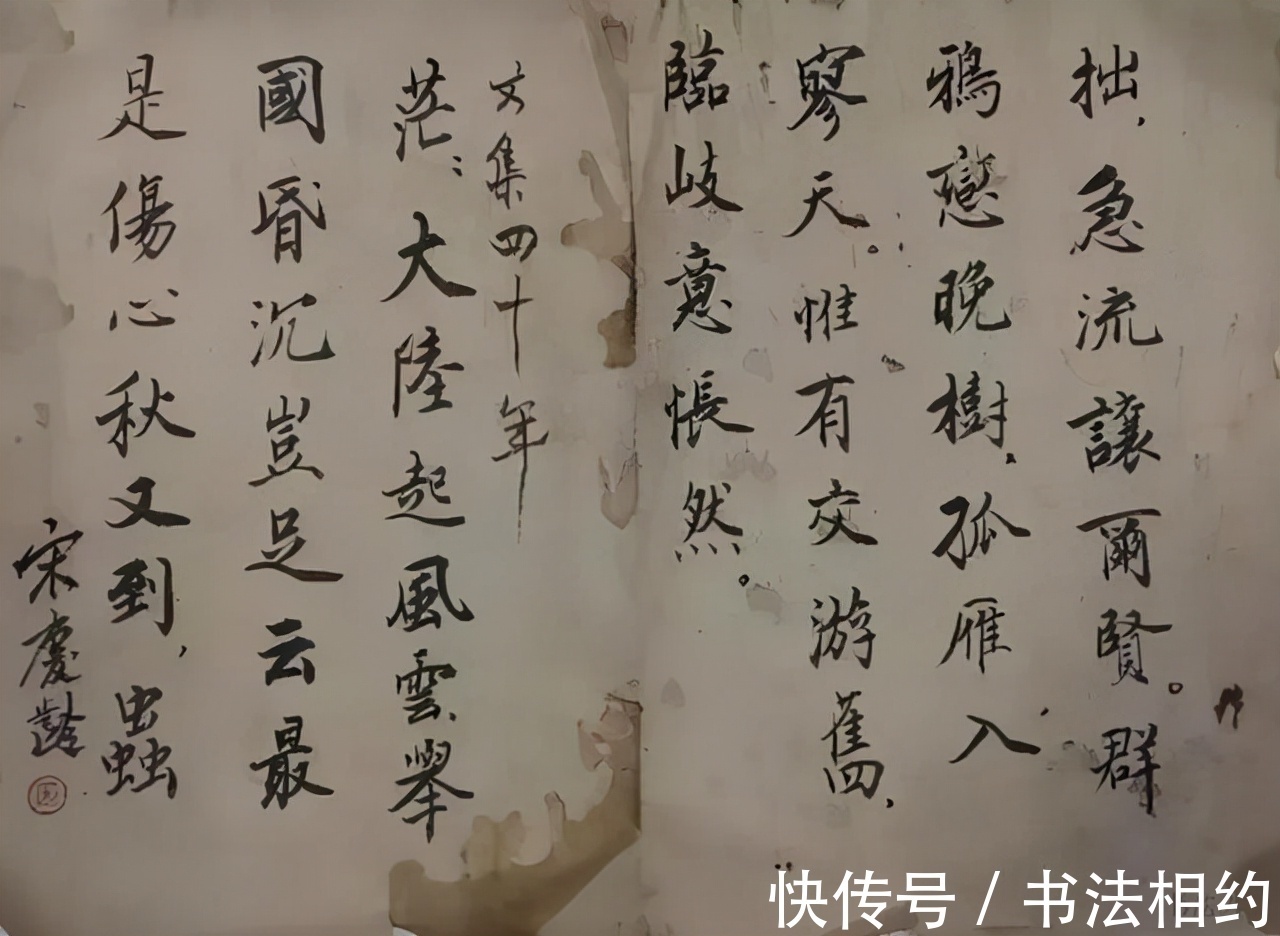 拙，急流讓爾賢。群
鴉戀晚樹，孤雁入
寥天。惟有交游舊，
臨歧意悵然。
文集四十年
茫；大陸起風雲，舉
國昏沉豈足云最
是傷心秋又到，蟲
宋慶齡
快传号 / 书法相约